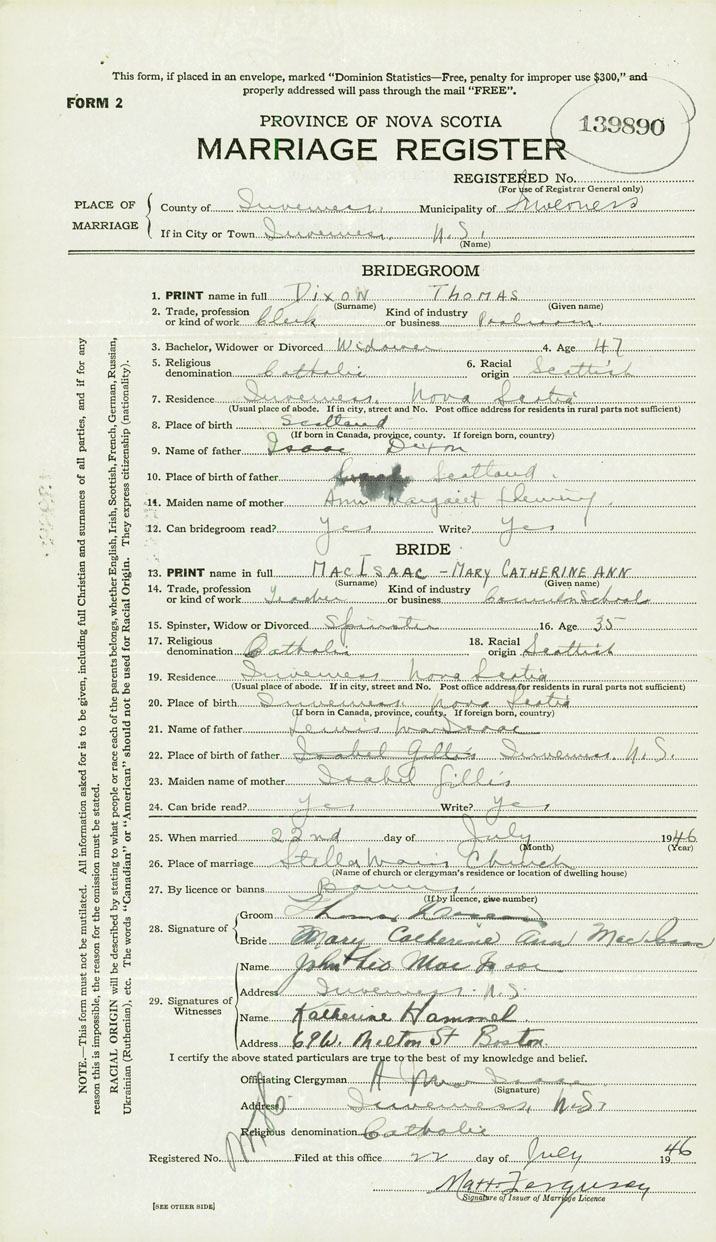 This form, if placed in an envelope, marked “Dominion Statistics—Free, penalty for improper use $300,” and
properly addressed will pass through the mail “FREE”.
FORM 2
139890
PROVINCE OF NOVA SCOTIA
MARRIAGE REGISTER
REGISTERED No.
(For use of Registrar General only)
PLACE OF MARRIAGE
County of Inverness. Municipality of Inverness
If in City or Town Inverness. N.S.
(Name)
BRIDEGROOM
1. PRINT name in full DIXON THOMAS
(Surname) (Given name)
2. Trade, profession or kind of work Clerk Kind of industry or business Poolroom.
3. Bachelor, Widower or Divorced Widower 4. Age 47
5. Religious denomination Catholic 6. Racial origin Scottish
7. Residence Inverness. Nova Scotia
(Usual place of abode. If in city, street and No. Post office address for residents in rural parts not sufficient)
8. Place of birth Scotland
(If born in Canada, province, county. If foreign born, country)
9. Name of father Isaac Dixon
10. Place of birth of father Scotland.
11. Maiden name of mother Ann Margaret Fleming.
12. Can bridegroom read? Yes Write? Yes
BRIDE
13. PRINT name in full MACISAAC - MARY CATHERINE ANN
(Surname) (Given name)
14. Trade, profession or kind of work Teacher Kind of industry or business Common School
15. Spinster, Widow or Divorced Spinster 16. Age 35
17. Religious denomination Catholic 18. Racial origin Scottish
19. Residence Inverness Nova Scotia
(Usual place of abode. If in city, street and No. Post office address for residents in rural parts not sufficient)
20. Place of birth Inverness, Nova Scotia
(If born in Canada, province, county. If foreign born, country)
21. Name of father Lewis MacIsaac
22. Place of birth of father Isabel Gillis Inverness. N.S.
23. Maiden name of mother Isabel Gillis
24. Can bride read? Yes Write? Yes
25. When married 22nd day of July 1946
(Month) (Year)
26. Place of marriage Stella Maris Church
(Name of church or clergyman's residence or location of dwelling house)
27. By licence or banns Banns.
(If by licence, give number)
28. Signature of
Groom Thomas
Bride Mary Catherine Ann MacIsaac
29. Signatures of Witnesses
Name John Leo MacIsaac
Address Inverness. N.S.
Name Katherine Hammel
Address 69 W. Milton St Boston.
I certify the above stated particulars are true to the best of my knowledge and belief.
Officiating Clergyman MacIsaac
(Signature)
Address Inverness, N.S.
Religious denomination Catholic
Registered No. Filed at this office 22 day of July 1946
Matt. Ferguson
Signature of Issuer of Marriage Licence
[SEE OTHER SIDE]
NOTE.—This form must not be mutilated. All information asked for is to be given, including full Christian and surnames of all parties, and if for any
reason this is impossible, the reason for the omission must be stated.
RACIAL ORIGIN will be described by stating to what people or race each of the parents belongs, whether English, Irish, Scottish, French, German, Russian,
Ukrainian (Ruthenian), etc. The words “Canadian” or “American” should not be used for Racial Origin. They express citizenship (nationality).